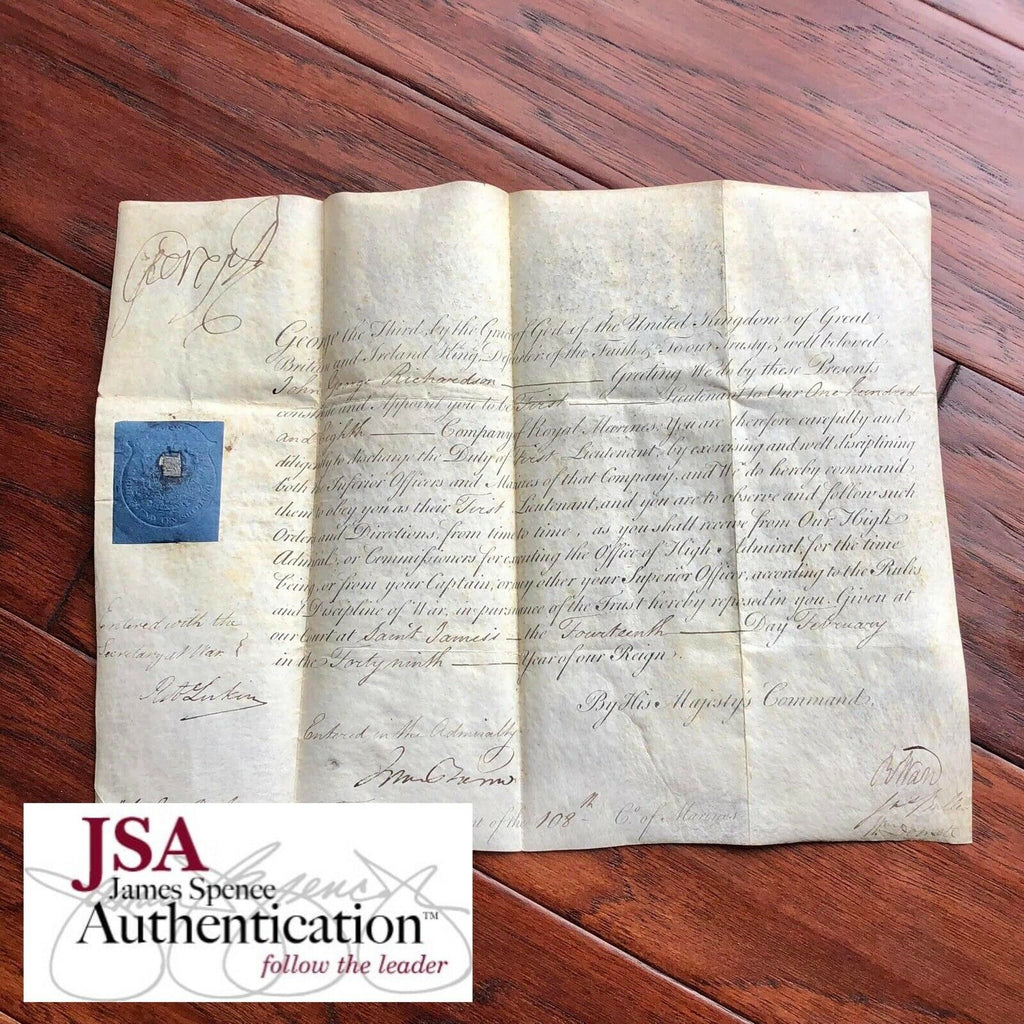 George R
George the Third, by the Grace of God, of the United Kingdom of Great
Britain and Ireland King, Defender of the Faith &c To our Trusty & well beloved
John George Richardson Greeting We do by these Presents
constitute and Appoint you to be First Lieutenant to Our One hundred
and Eighth Company of Royal Marines. You are therefore carefully and
diligently to discharge the Duty of First Lieutenant, by exercising and well disciplining
both the Inferior Officers and Marines of that Company, and We do hereby command
them to obey you as their First Lieutenant, and you are to observe and follow such
Orders and Directions, from time to time, as you shall receive from Our High
Admiral, or Commissioners for executing the Office of High Admiral, for the time
being, or from your Captain, or any other your Superior Officer, according to the Rules
and Discipline of War, in pursuance of the Trust hereby reposed in you. Given at
our Court at Saint James's the Fourteenth Day February
in the Forty ninth Year of our Reign.
By His Majesty's Command,
Entered with the
Secretary at War
Rt Lukin
Entered in the Admiralty
Ward
of the 108th Co. of Marines
JSA
James Spence
Authentication™
follow the leader